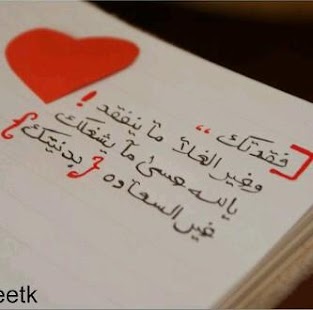 [ فقدتك ،،
وغير الغلا ما ينفقد !
يالله عسىٰ ما يشغلك
غير السعاده { بدنيتك }
eetk